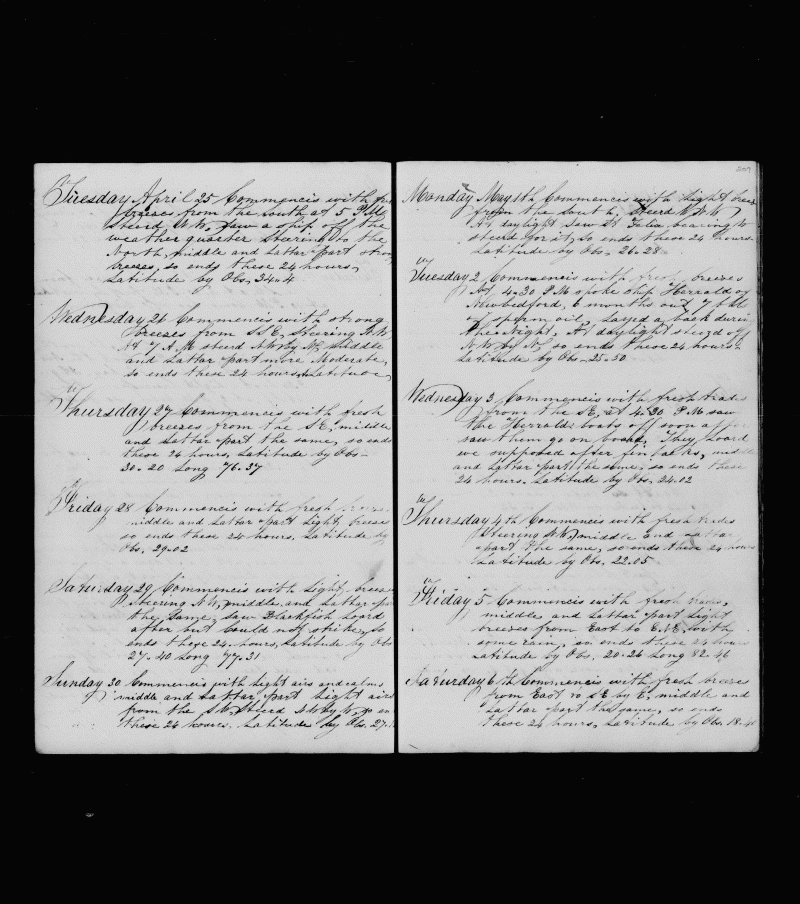 Tuesday April 25 Commencis with
breezes from the south at 5 P.M.
steerd N.W, Saw a ship off the
weather quarter steering to the
North, middle and Lattar part strong
breezes, so ends these 24 hours,
Latitude by Obs, 34-4
Wednesday 26 Commencis with strong
breezes from S.S.E, Steering N.W
At 7 A.M steerd N.W by N, middle
and Lattar part more Moderate,
so ends these 24 hours, Latitude,
Thursday 27 Commencis with fresh
breezes from the S.E, middle
and Lattar part the same, so ends
these 24 hours, Latitude by Obs-
30-20 Long 76-37
Friday 28 Commencis with fresh
middle and Lattar part Light breeze
so ends these 24 hours, Latitude by
Obs, 29-02
Saturday 29 Commencis with Light breeze
Steering N.W, middle, and Lattar
the Same, saw Blackfish Loard
after but could not strike, so
ends these 24 hours, Latitude by Obs
27-40 Long 77-31
Sunday 30 Commencis with Light airs and calms
middle and Lattar part Light airs
from the steerd N.W by W, so
these 24 hours. Latitude by Obs. 27-
207
Monday May 1th Commencis with Light breeze
from the South, Steerd N.N.W
At daylight Saw St Felix bearing
steerd for it, so ends these 24 hours
Latitude by Obs, 26-28
Tuesday 2 Commencis with fresh breezes
At 4-30 P.M spoke ship Herrald of
Newbedford, 6 months out
sperm oil, Layed aback
the Night, At daylight steerd off
N.W by N, so ends these 24 hours-
Latitude by Obs-25-30
Wednesday 3 Commencis with fresh trades
from the S.E, at 4-30 P.M saw
the Herralds boats off soon
saw them go on board. They Loard
we supposed after finbacks, middle
and Lattar part the same, so ends these
24 hours. Latitude by Obs. 24.02
Thursday 4th Commencis with fresh trades
Steering N.W, middle and Lattar
part the same, so ends these 24 hours
Latitude by Obs. 22.05
Friday 5 Commencis with fresh trades,
middle, and Lattar part Light
breezes from East to E.N.E, with
some rain, so ends these 24 hours
Latitude by Obs. 20-26 Long 82-46
Saturday 6th Commencis with fresh breezes
from East to S.E by E, middle and
Lattar part the same, so ends
these 24 hours, Latitude by Obs. 18-4